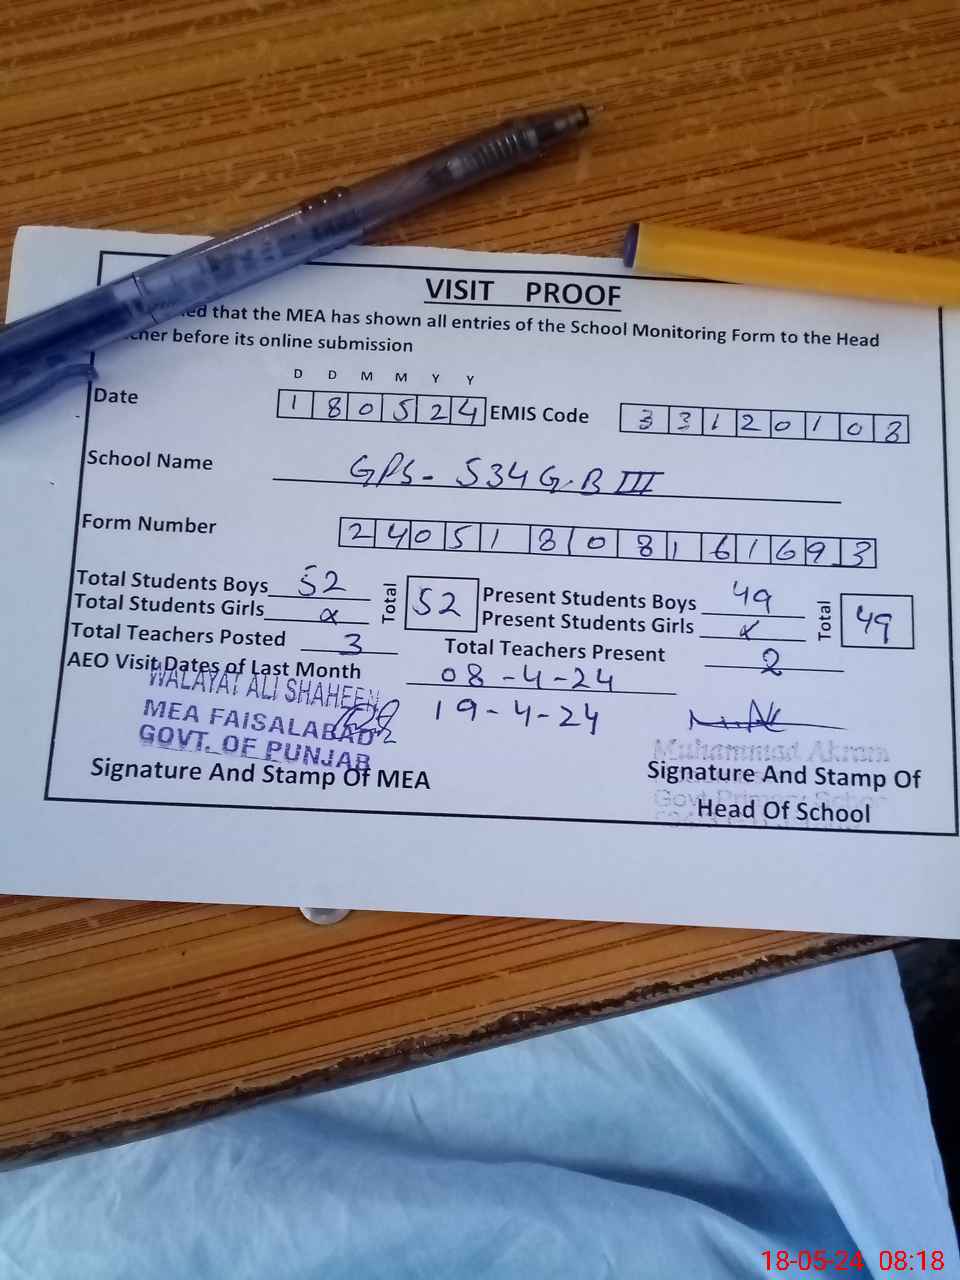 VISIT PROOF
that the MEA has shown all entries of the School Monitoring Form to the Head
before its online submission
D D M M Y Y
Date 1 8 0 5 2 4 EMIS Code 3 3 1 2 0 1 0 8
School Name GPS - 534 G.B III
Form Number 2 4 0 5 1 8 0 8 1 6 1 6 9 3
Total Students Boys 52 Total 52 Present Students Boys 49 Total 49
Total Students Girls x Present Students Girls x
Total Teachers Posted 3 Total Teachers Present 2
AEO Visit Dates of Last Month 08-4-24
19-4-24
WALAYAT ALI SHAHEEN
MEA FAISALABAD
GOVT. OF PUNJAB
Signature And Stamp Of MEA
Muhammad Akram
Signature And Stamp Of
Head Of School
18-05-24 08:18